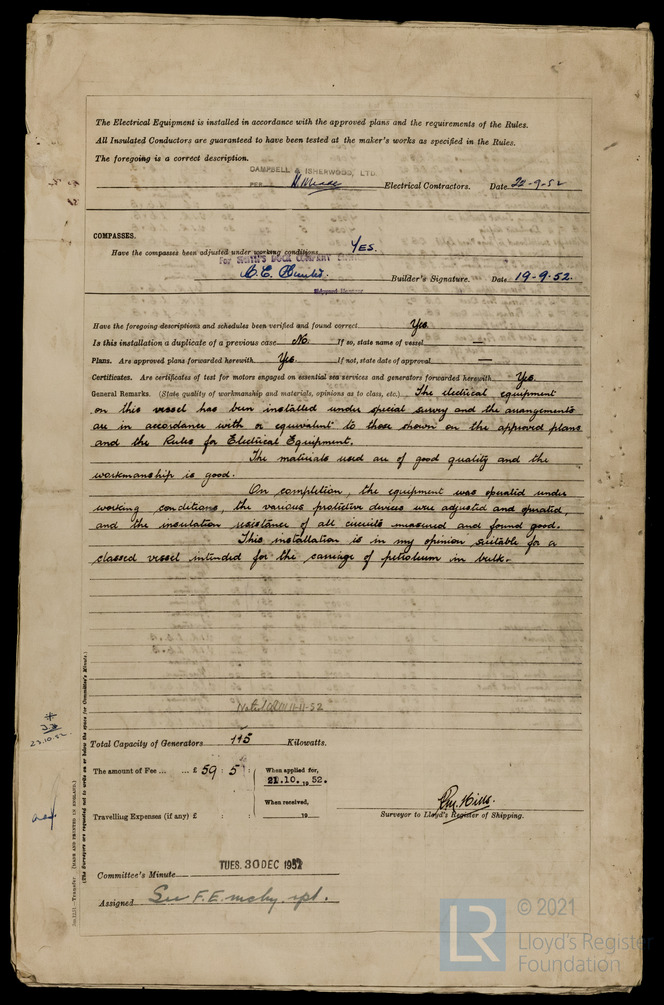 The Electrical Equipment is installed in accordance with the approved plans and the requirements of the Rules.
All Insulated Conductors are guaranteed to have been tested at the maker's works as specified in the Rules.
The foregoing is a correct description.
CAMPBELL & ISHERWOOD, LTD.
PER Electrical Contractors. Date 22-9-52
COMPASSES.
Have the compasses been adjusted under working conditions YES.
For SMITH'S DOCK COMPANY
Builder's Signature. Date 19-9-52.
Have the foregoing descriptions and schedules been verified and found correct Yes
Is this installation a duplicate of a previous case No. If so, state name of vessel —
Plans. Are approved plans forwarded herewith Yes. If not, state date of approval —
Certificates. Are certificates of test for motors engaged on essential sea services and generators forwarded herewith Yes.
General Remarks. (State quality of workmanship and materials, opinions as to class, etc.) The electrical equipment
on this vessel has been installed under special survey and the arrangements
are in accordance with or equivalent to those shown on the approved plans
and the Rules for Electrical Equipment.
The materials used are of good quality and the
workmanship is good.
On completion, the equipment was operated under
working conditions, the various protective devices were adjusted and operated,
and the insulation resistance of all circuits measured and found good.
This installation is in my opinion suitable for a
classed vessel intended for the carriage of petroleum in bulk.-
Noted 11-11-52
23.10.52
Total Capacity of Generators 115 Kilowatts.
The amount of Fee ... ... £ 59 : 5 : When applied for,
21.10.1952.
When received,
19
Travelling Expenses (if any) £ : :
Surveyor to Lloyd's Register of Shipping.
Committee's Minute TUES. 30 DEC 1952
Assigned See F.E. mchy. rpt.
(MADE AND PRINTED IN ENGLAND.)
(The Surveyors are requested not to write on or below the space for Committee's Minute.)
LR
© 2021
Lloyd's Register
Foundation